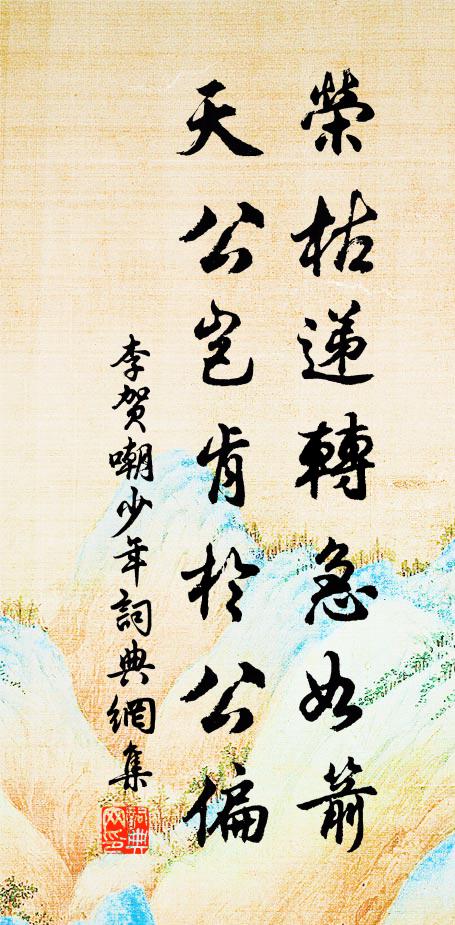 榮枯递轉急如箭
天公岂肯於公偏
李贺嘲少年詞典網集
詞典網印